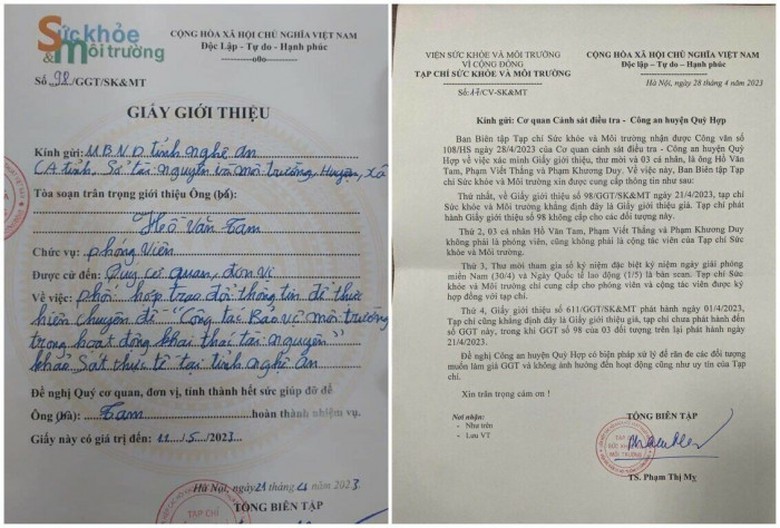 Sức khỏe
& Môi trường
CỘNG HÒA XÃ HỘI CHỦ NGHĨA VIỆT NAM
Độc Lập - Tự do - Hạnh phúc
Số 98/GGT/SK&MT
GIẤY GIỚI THIỆU
Kính gửi: U.B.N.D tỉnh nghệ an
CA tỉnh, Sở tài nguyên và môi trường, Huyện, Xã
Tòa soạn trân trọng giới thiệu Ông (bà):
Hồ Văn Tam
Chức vụ: phóng viên
Được cử đến: Quý cơ quan, đơn vị
Về việc: phối hợp trao đổi thông tin để thực
hiện chuyên đề "Công tác Bảo vệ môi trường
trong hoạt động khai thác tài nguyên"
khảo sát thực tế tại tỉnh nghệ an
Đề nghị Quý cơ quan, đơn vị, tỉnh thành hết sức giúp đỡ để
Ông (bà): Tam hoàn thành nhiệm vụ.
Giấy này có giá trị đến: 11/5/2023
Hà Nội, ngày 21 tháng 4 năm 2023
TỔNG BIÊN TẬP
TẠP CHÍ
VIỆN SỨC KHỎE VÀ MÔI TRƯỜNG
VÌ CỘNG ĐỒNG
TẠP CHÍ SỨC KHỎE VÀ MÔI TRƯỜNG
Số:17/CV-SK&MT
CỘNG HÒA XÃ HỘI CHỦ NGHĨA VIỆT NAM
Độc lập – Tự do – Hạnh phúc
Hà Nội, ngày 28 tháng 4 năm 2023
Kính gửi: Cơ quan Cảnh sát điều tra - Công an huyện Quỳ Hợp
Ban Biên tập Tạp chí Sức khỏe và Môi trường nhận được Công văn số
108/HS ngày 28/4/2023 của Cơ quan cảnh sát điều tra - Công an huyện Quỳ
Hợp về việc xác minh Giấy giới thiệu, thư mời và 03 cá nhân, là ông Hồ Văn
Tam, Phạm Viết Thắng và Phạm Khương Duy. Về việc này, Ban Biên tập Tạp
chí Sức khỏe và Môi trường xin được cung cấp thông tin như sau:
Thứ nhất, về Giấy giới thiệu số 98/GGT/SK&MT ngày 21/4/2023, tạp chí
Sức khỏe và Môi trường khẳng định đây là Giấy giới thiệu giả. Tạp chí phát
hành Giấy giới thiệu số 98 không cấp cho các đối tượng này.
Thứ 2, 03 cá nhân Hồ Văn Tam, Phạm Viết Thắng và Phạm Khương Duy
không phải là phóng viên, cũng không phải là cộng tác viên của Tạp chí Sức
khỏe và Môi trường.
Thứ 3, Thư mời tham gia số kỷ niệm đặc biệt kỷ niệm ngày giải phóng
miền Nam (30/4) và Ngày Quốc tế lao động (1/5) là bản scan. Tạp chí Sức
khỏe và Môi trường chỉ cung cấp cho phóng viên và cộng tác viên được ký
hợp đồng với tạp chí.
Thứ 4, Giấy giới thiệu số 611/GGT/SK&MT phát hành ngày 01/4/2023,
Tạp chí cũng khẳng định đây là Giấy giới thiệu giả, tạp chí chưa phát hành đến
số GGT này, trong khi GGT số 98 của 03 đối tượng trên lại phát hành ngày
21/4/2023.
Đề nghị Công an huyện Quỳ Hợp có biện pháp xử lý để răn đe các đối tượng
muốn làm giả GGT và không ảnh hưởng đến hoạt động cũng như uy tín của Tạp
chí.
Xin trân trọng cảm ơn !
Nơi nhận:
- Như trên
- Lưu VT
TỔNG BIÊN TẬP
TẠP CHÍ
SỨC KHỎE
MÔI TRƯỜNG
TS. Phạm Thị Mỵ